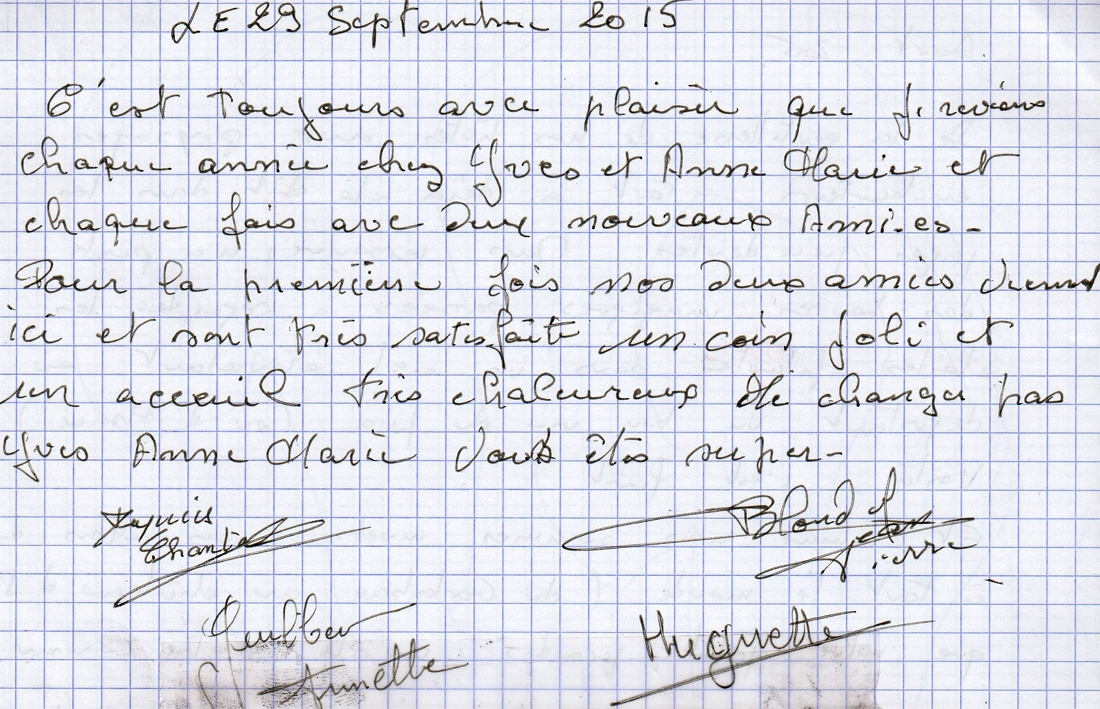 LE 29 Septembre 2015
C'est Toujours avec plaisir que je reviens
chaque année chez Yves et Anne Marie et
chaque fois avec deux nouveaux Ami.es-
Pour la première fois nos deux amies vienne
ici et sont très satisfaite un coin Joli et
un acceuil très chaleureux Ne changer pas
Yves Anne Marie vous êtes super-
Chantal
Blond Jean
Pierre
Annette
Huguette